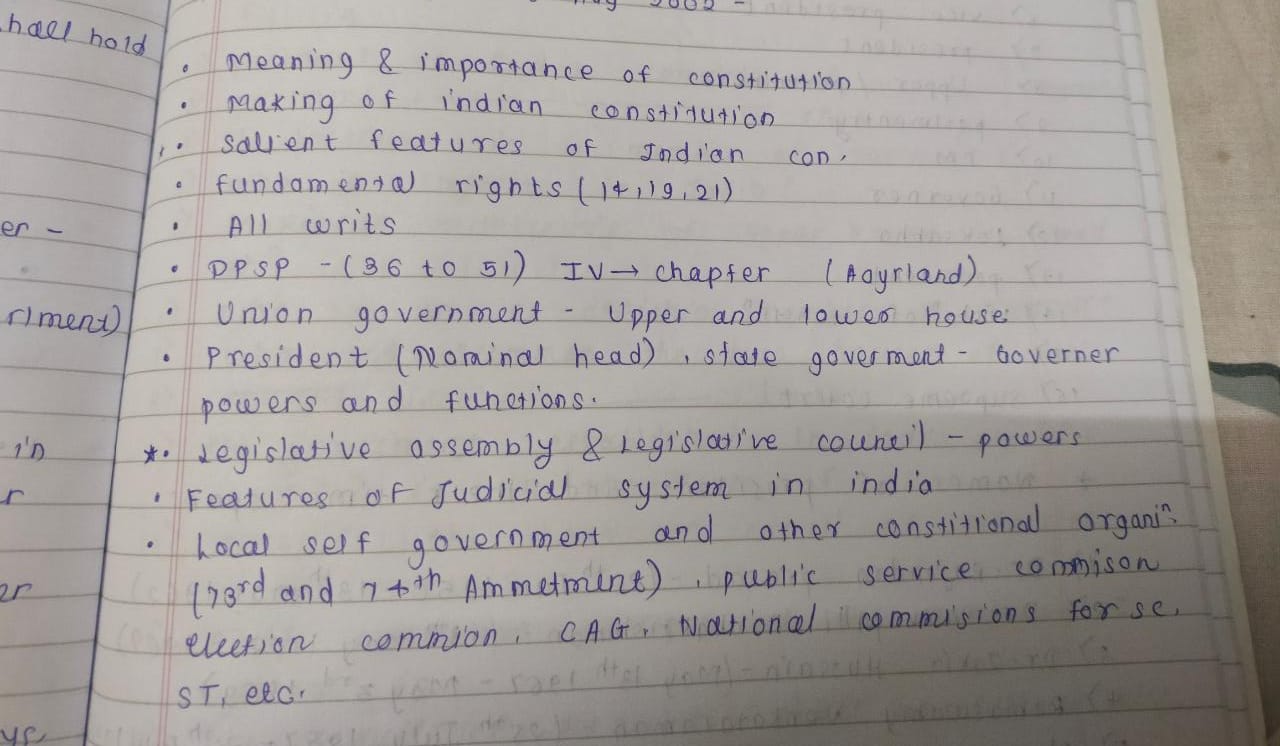 2002 -
hall hold
• Meaning & importance of constitution
• Making of indian constitution
• salient features of Indian con.
• fundamental rights (14,19,21)
er - • All writs
• DPSP - (36 to 51) IV → chapter (Aayrland)
riment) • Union government - Upper and lower house
• President (Nominal head), state goverment - Governer
powers and functions.
in *• Legislative assembly & Legislative council - powers
r • Features of Judicial system in india
• Local self government and other constitional organin
er (73rd and 74th Ammetment), public service commison
election commion, CAG, National commisions for sc,
ST, etc.
ys